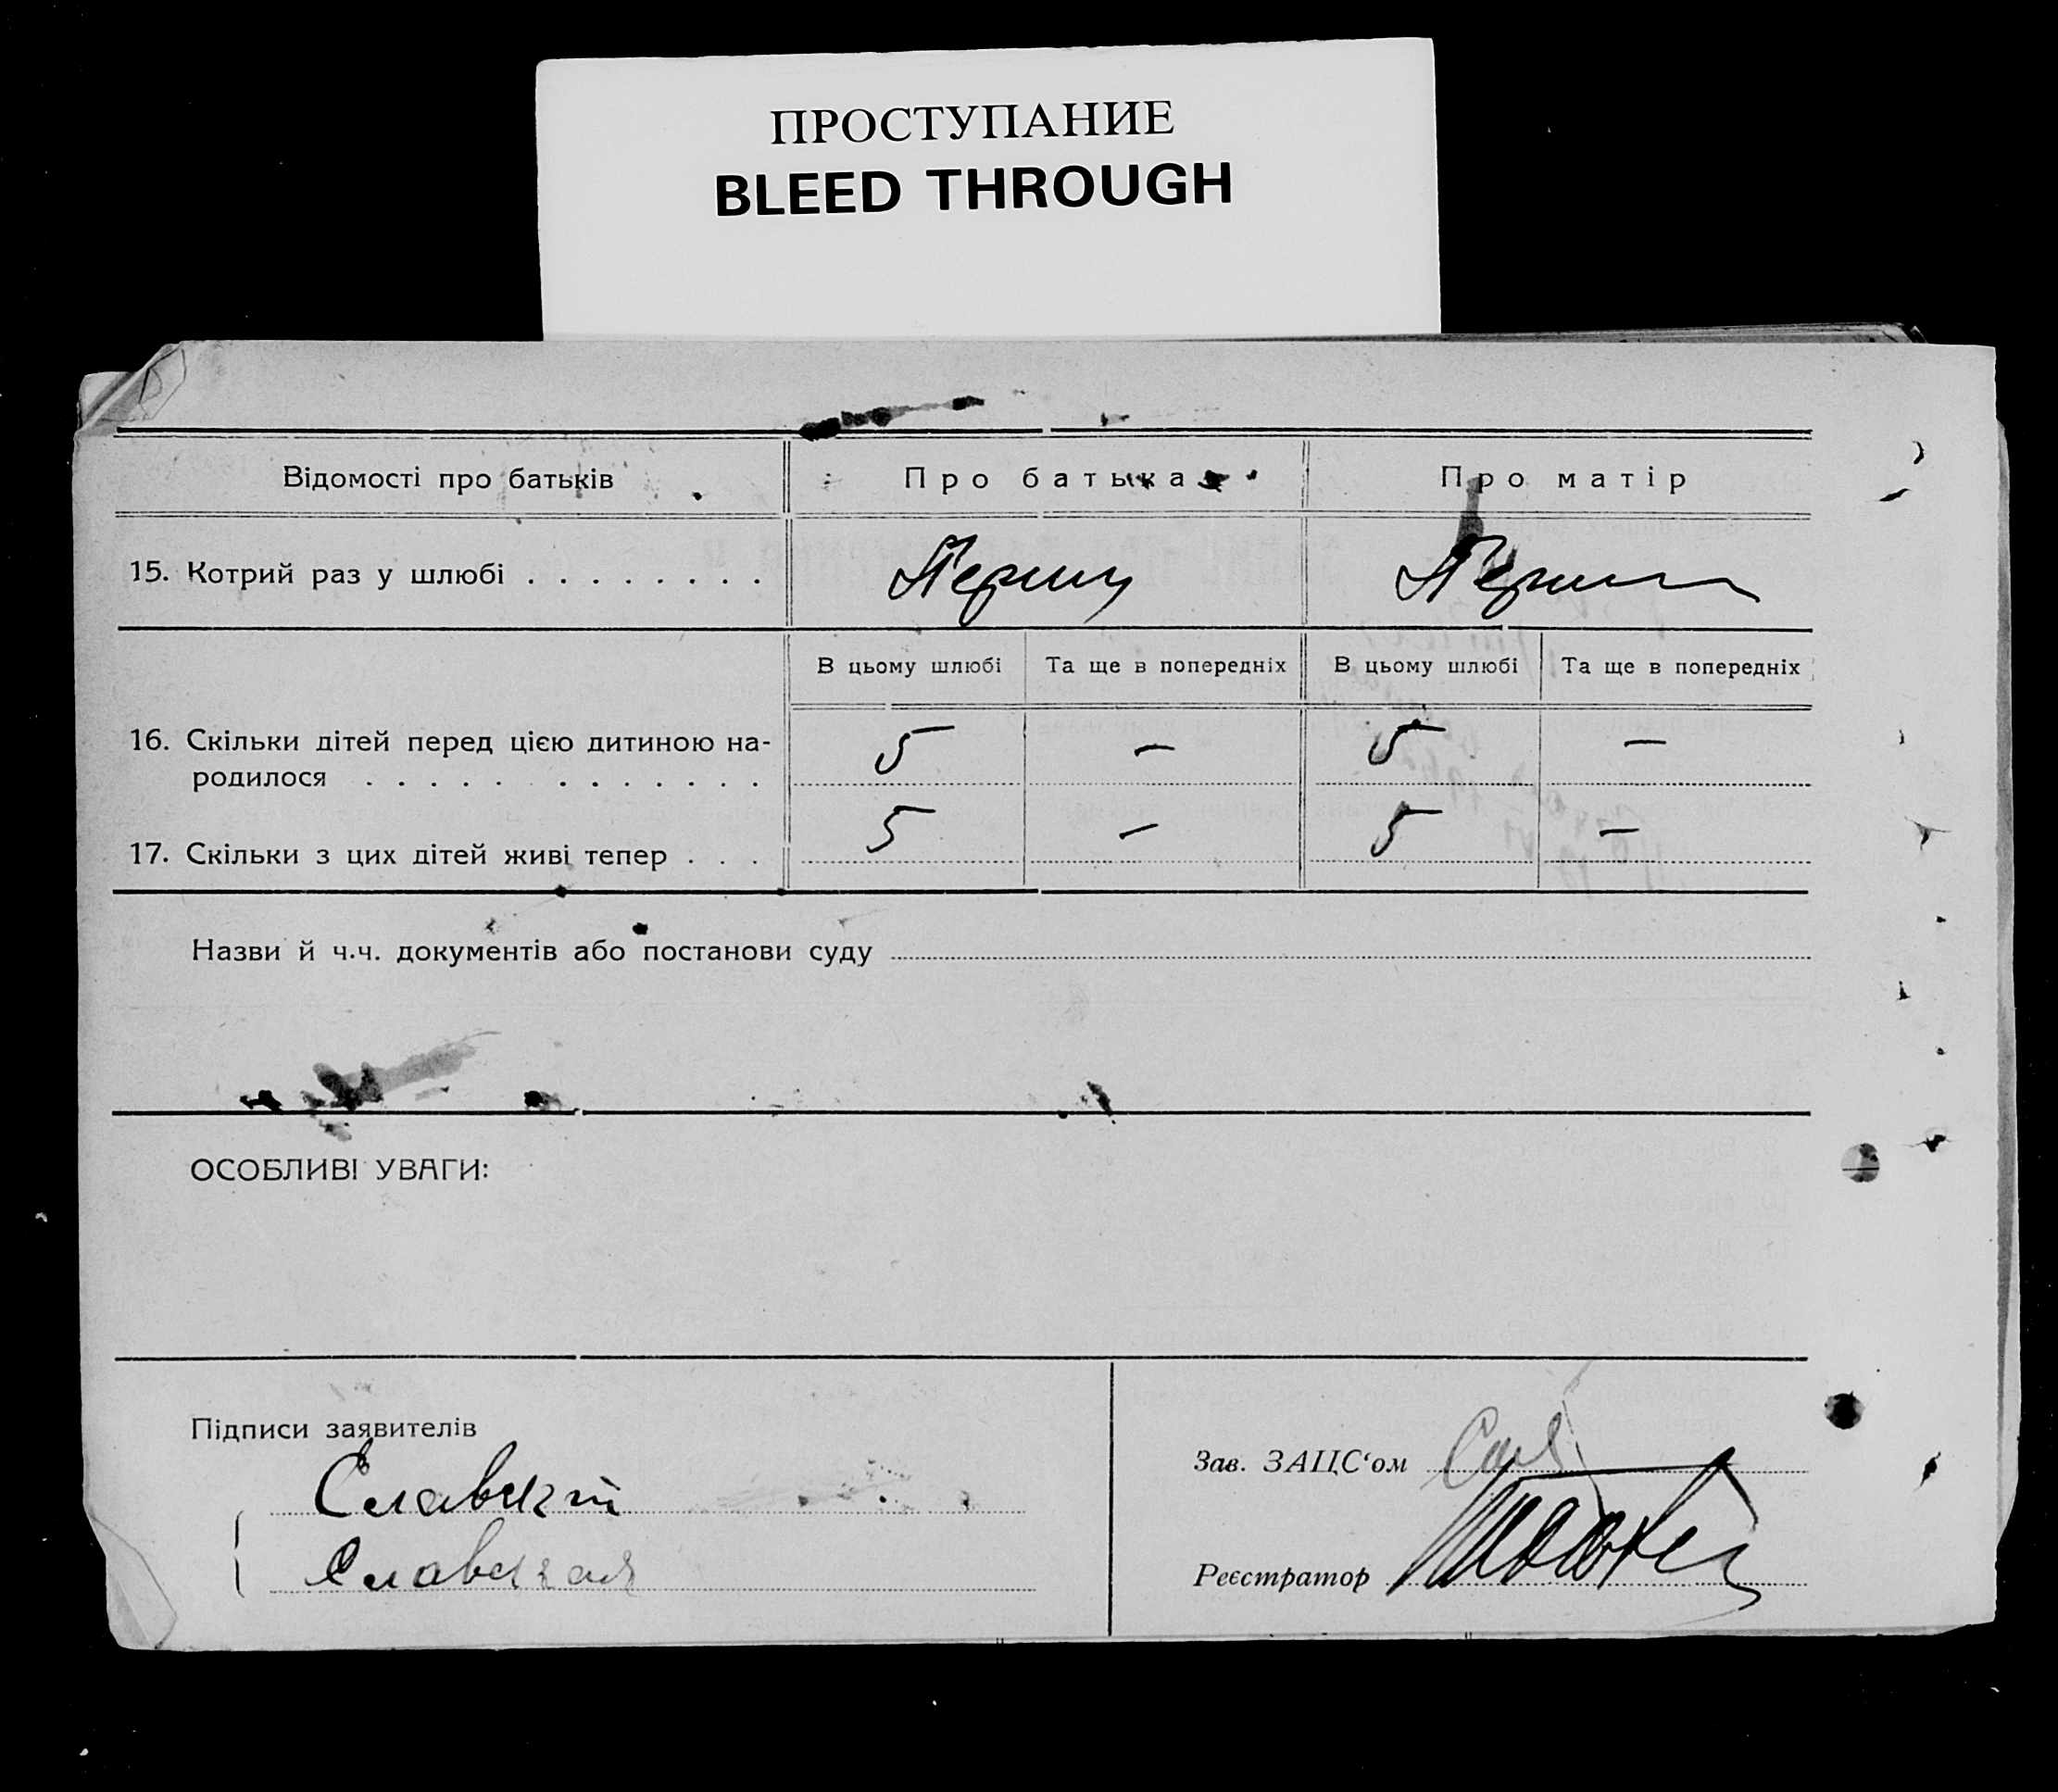 ПРОСТУПАНИЕ
BLEED THROUGH
Відомості про батьків Про батька Про матір
15. Котрий раз у шлюбі . . . . . . . .
В цьому шлюбі Та ще в попередніх В цьому шлюбі Та ще в попередніх
16. Скільки дітей перед цією дитиною на- 5 — 5 —
родилося . . . . . . . . . . . . .
17. Скільки з цих дітей живі тепер . . . 5 — 5 —
Назви й ч.ч. документів або постанови суду
ОСОБЛИВІ УВАГИ:
Підписи заявителів
Зав. ЗАЦС‘ом
Славский
Славская
Реєстратор